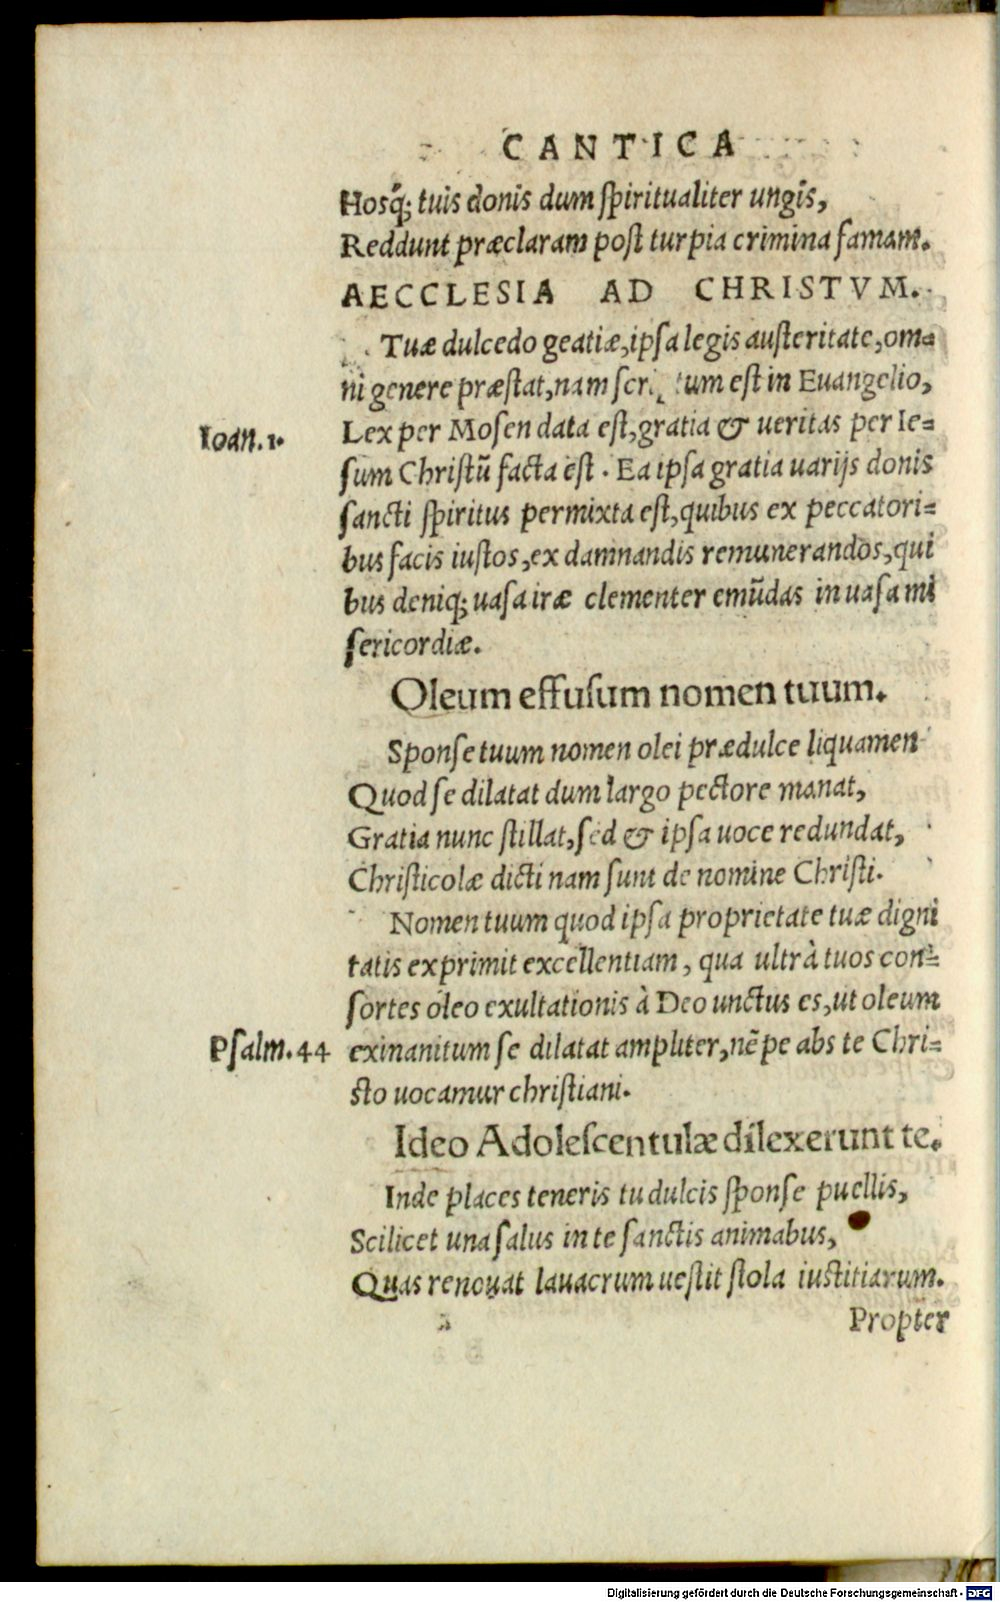 CANTICA
Hosq́; tuis donis dum ſpiritualiter ungis,
Reddunt præclaram poſt turpia crimina famam.
AECCLESIA AD CHRISTVM.
Tuæ dulcedo geatiæ, ipſa legis auſteritate, om=
ni genere præſtat, nam eſt in Euangelio,
Ioan. 1.
Lex per Moſen data eſt, gratia & ueritas per Ie=
ſum Chriſtū facta eſt. Ea ipſa gratia uarijs donis
ſancti ſpiritus permixta eſt, quibus ex peccatori=
bus facis iuſtos, ex damnandis remunerandos, qui
bus deniq; uaſa iræ clementer emūdas in uaſa mi
ſericordiæ.
Oleum effuſum nomen tuum.
Sponſe tuum nomen olei prædulce liquamen
Quod ſe dilatat dum largo pectore manat,
Gratia nunc ſtillat, ſed & ipſa uoce redundat,
Chriſticolæ dicti nam ſunt de nomine Chriſti.
Nomen tuum quod ipſa proprietate tuæ digni
tatis exprimit excellentiam, qua ultrà tuos con=
ſortes oleo exultationis à Deo unctus es, ut oleum
Pſalm. 44
exinanitum ſe dilatat ampliter, nēpe abs te Chri=
ſto uocamur chriſtiani.
Ideo Adoleſcentulæ dilexerunt te.
Inde places teneris tu dulcis ſponſe puellis,
Scilicet una ſalus in te ſanctis animabus,
Quas renouat lauacrum ueſtit ſtola iuſtitiarum.
Propter
Digitalisierung gefördert durch die Deutsche Forschungsgemeinschaft - DFG